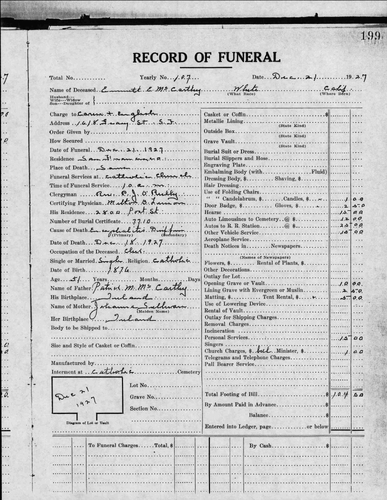 199
RECORD OF FUNERAL
Total No. Yearly No. 107 Date Dec 21 1927
Name of Deceased Emmett C McCarthy White Calif.
Husband— Wife—Widow Son—Daughter of (What Race) (Where Born)
Charge to Carew & English
Address 1618 St. S.F.
Order Given by
How Secured
Date of Funeral Dec. 21. 1927.
Residence San Francisco
Place of Death Same
Funeral Services at Catholic Church
Time of Funeral Service 10 a.m.
Clergyman Rev. P. J. O' Reilly
Certifying Physician Milton B. Lennon
His Residence 2800 Post St
Number of Burial Certificate 7710
Cause of Death Encephalitis
(Primary) (Secondary)
Date of Death Dec. 18. 1927.
Occupation of the Deceased Clerk
Single or Married Single Religion Catholic
Date of Birth 1876
Age 51 Years Months Days
Name of Father Patrick M. McCarthy
His Birthplace Ireland
Name of Mother Johanna Sullivan
(Maiden Name)
Her Birthplace Ireland
Body to be Shipped to
Size and Style of Casket or Coffin
Manufactured by
Interment at Catholic Cemetery
Lot No.
Grave No.
Section No.
Dec 21 1927
Diagram of Lot or Vault
Casket or Coffin
Metallic Lining
(State Kind)
Outside Box
(State Kind)
Grave Vault
(State Kind)
Burial Suit or Dress
Burial Slippers and Hose
Engraving Plate
Embalming Body (with Fluid)
Dressing Body, $ Shaving, $
Hair Dressing
Use of Folding Chairs
" " Candelabrum, $ Candles, $ 1 00
Door Badge, $ Gloves, $ 2 50
Hearse 15 00
Auto Limousines to Cemetery @ 12 00
Autos to R. R. Station @ 25 00
Other Vehicle Service 15 00
Aeroplane Service
Death Notices in Newspapers
(Names of Newspapers)
Flowers, $ Rental of Plants, $
Other Decorations
Outlay for Lot
Opening Grave or Vault 10 00
Lining Grave with Evergreen or Muslin 2 50
Matting, $ Tent Rental, $ 5 00
Use of Lowering Device
Rental of Vault
Outlay for Shipping Charges
Removal Charges
Incineration
Personal Services 15 00
Singers
Church Charges, $ bell Minister, $ 1 00
Telegrams and Telephone Charges
Pall Bearer Service
Total Footing of Bill 104 00
By Amount Paid in Advance
Balance
Entered into Ledger, page or below
To Funeral Charges Total, $
By Cash $